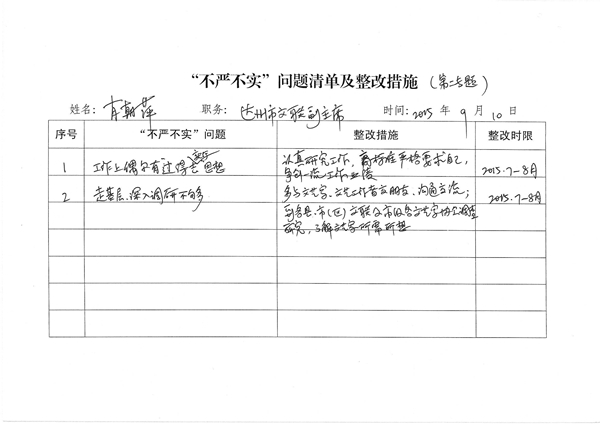 “不严不实”问题清单及整改措施(第二专题)
姓名: 肖朝萍 职务: 达州市文联副主席 时间: 2015 年 9 月 10 日
序号 “不严不实”问题 整改措施 整改时限
1 工作上偶尔有过得去思想 认真研究工作,高标准严格要求自己, 2015.7-8月
争创一流工作业绩
2 走基层,深入调研不够 多与文艺家、文艺工作者交朋友,沟通交流; 2015.7-8月
到各县、市(区)文联及市级各文艺家协会调查
研究,了解文艺家所需所想